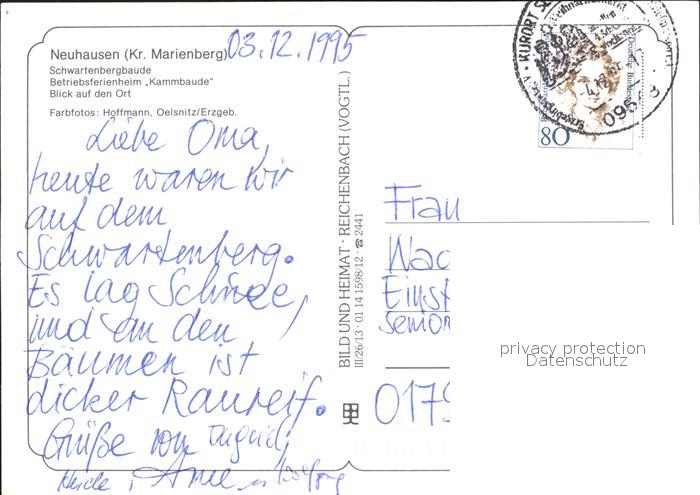 03.12.1995
Neuhausen (Kr. Marienberg)
Schwartenbergbaude
Betriebsferienheim „Kammbaude"
Blick auf den Ort
Farbfotos: Hoffmann, Oelsnitz/Erzgeb.
Liebe Oma,
heute waren wir
auf dem
Schwartenberg.
Es lag Schnee,
und an den
Bäumen ist
dicker Raureif.
Grüße von Ingrid,
Heide, Anne u. Wolfgang
BILD UND HEIMAT · REICHENBACH (VOGTL.)
III/26/13 · 01 14 1598/12 · ☎ 2441
KURORT
80
Frau
Wac
Einst
Senior
0179
privacy protection
Datenschutz